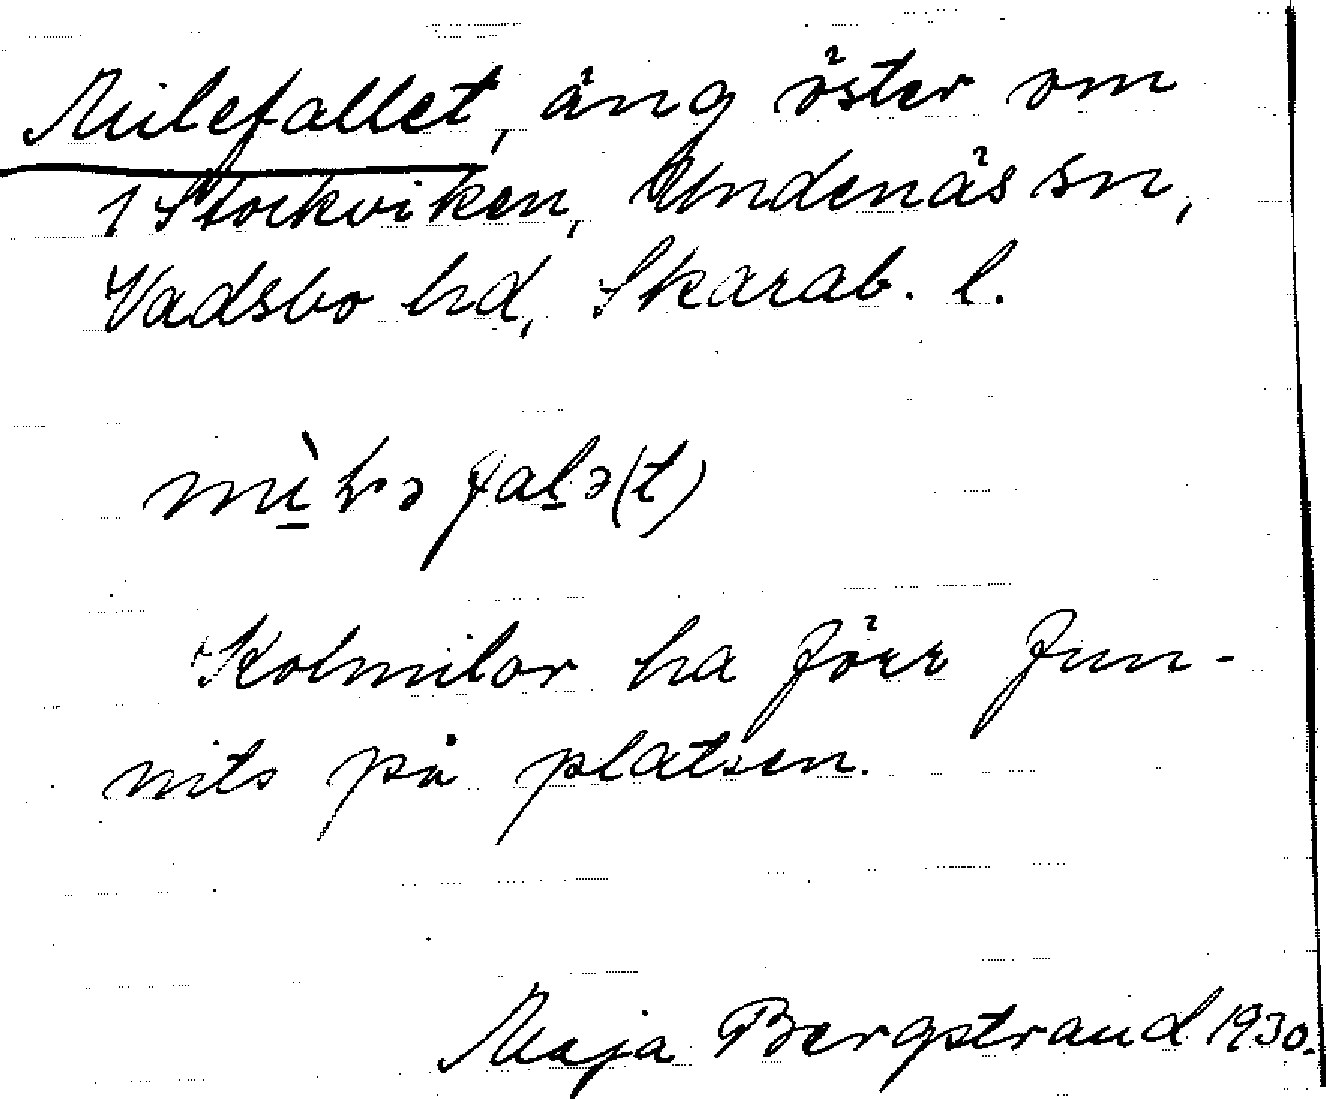 Milefallet, äng öster om
1 Stockviken, Undenäs sn,
Vadsbo hd, Skarab. l.
Kolmilor ha förr fun-
nits på platsen.
Maja Bergstrand 1930.